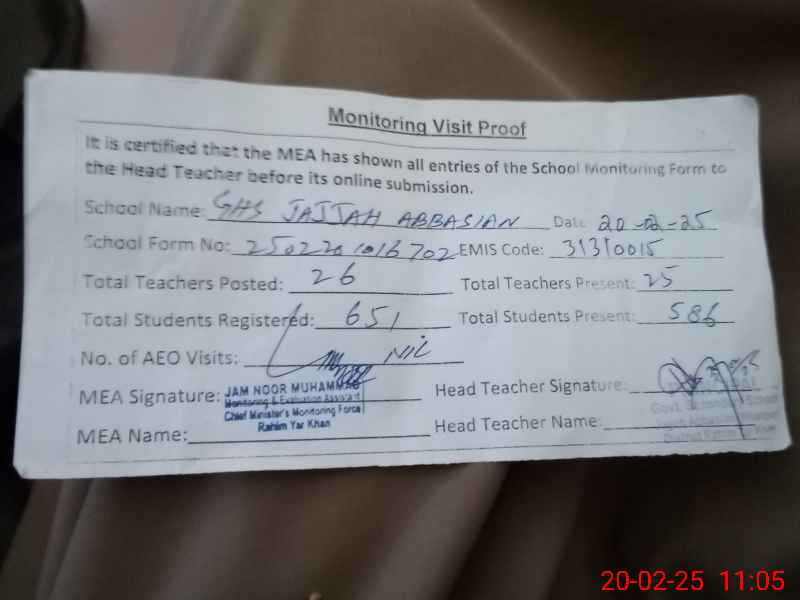 Monitoring Visit Proof
It is certified that the MEA has shown all entries of the School Monitoring Form to
the Head Teacher before its online submission.
School Name: GHS JAJJAH ABBASIAN Date 20-02-25
School Form No: 2502201016702 EMIS Code: 31310015
Total Teachers Posted: 26 Total Teachers Present: 25
Total Students Registered: 651 Total Students Present: 586
No. of AEO Visits: NIL
MEA Signature: Head Teacher Signature:
JAM NOOR MUHAMMAD
Monitoring & Evaluation Assistant
Chief Minister's Monitoring Force
Rahim Yar Khan
MEA Name: Head Teacher Name:
20-02-25 11:05